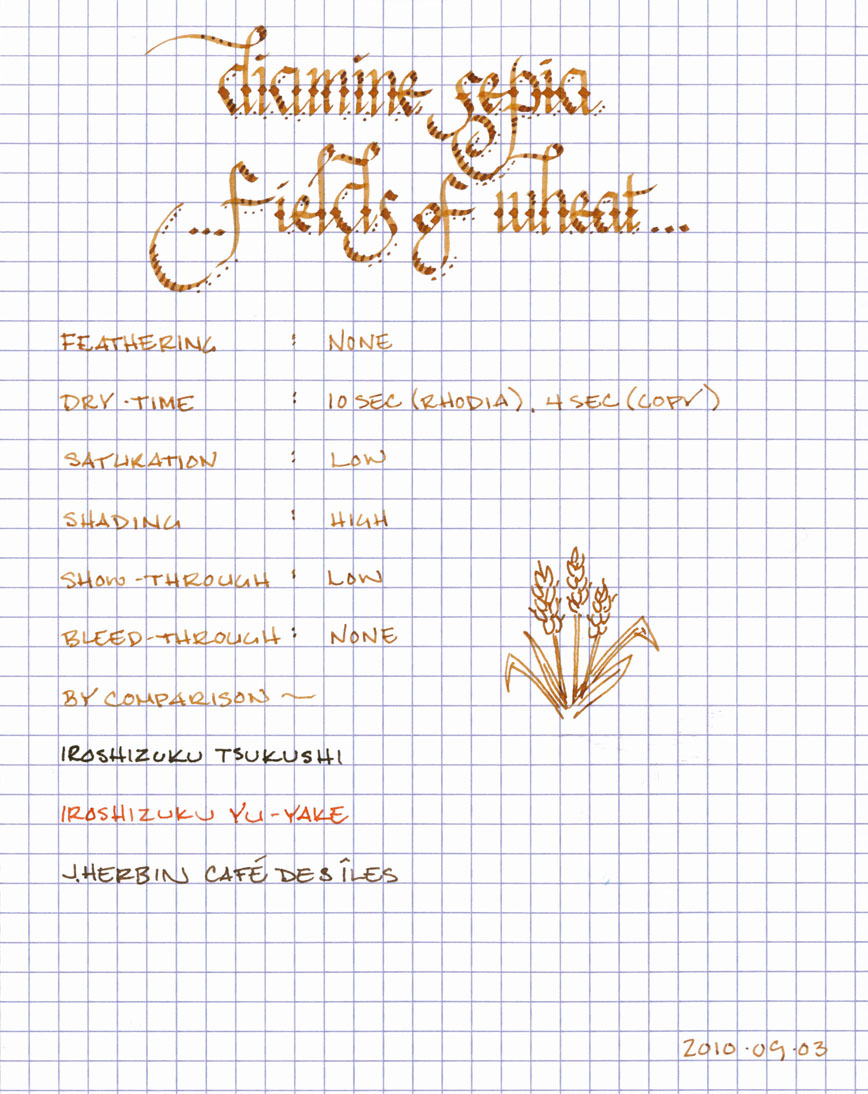 diamine sepia
...fields of wheat...
FEATHERING : NONE
DRY-TIME : 10 SEC (RHODIA), 4 SEC (COPY)
SATURATION : LOW
SHADING : HIGH
SHOW-THROUGH : LOW
BLEED-THROUGH : NONE
BY COMPARISON ~
IROSHIZUKU TSUKUSHI
IROSHIZUKU YU-YAKE
J.HERBIN CAFÉ DES ÎLES
2010·09·03